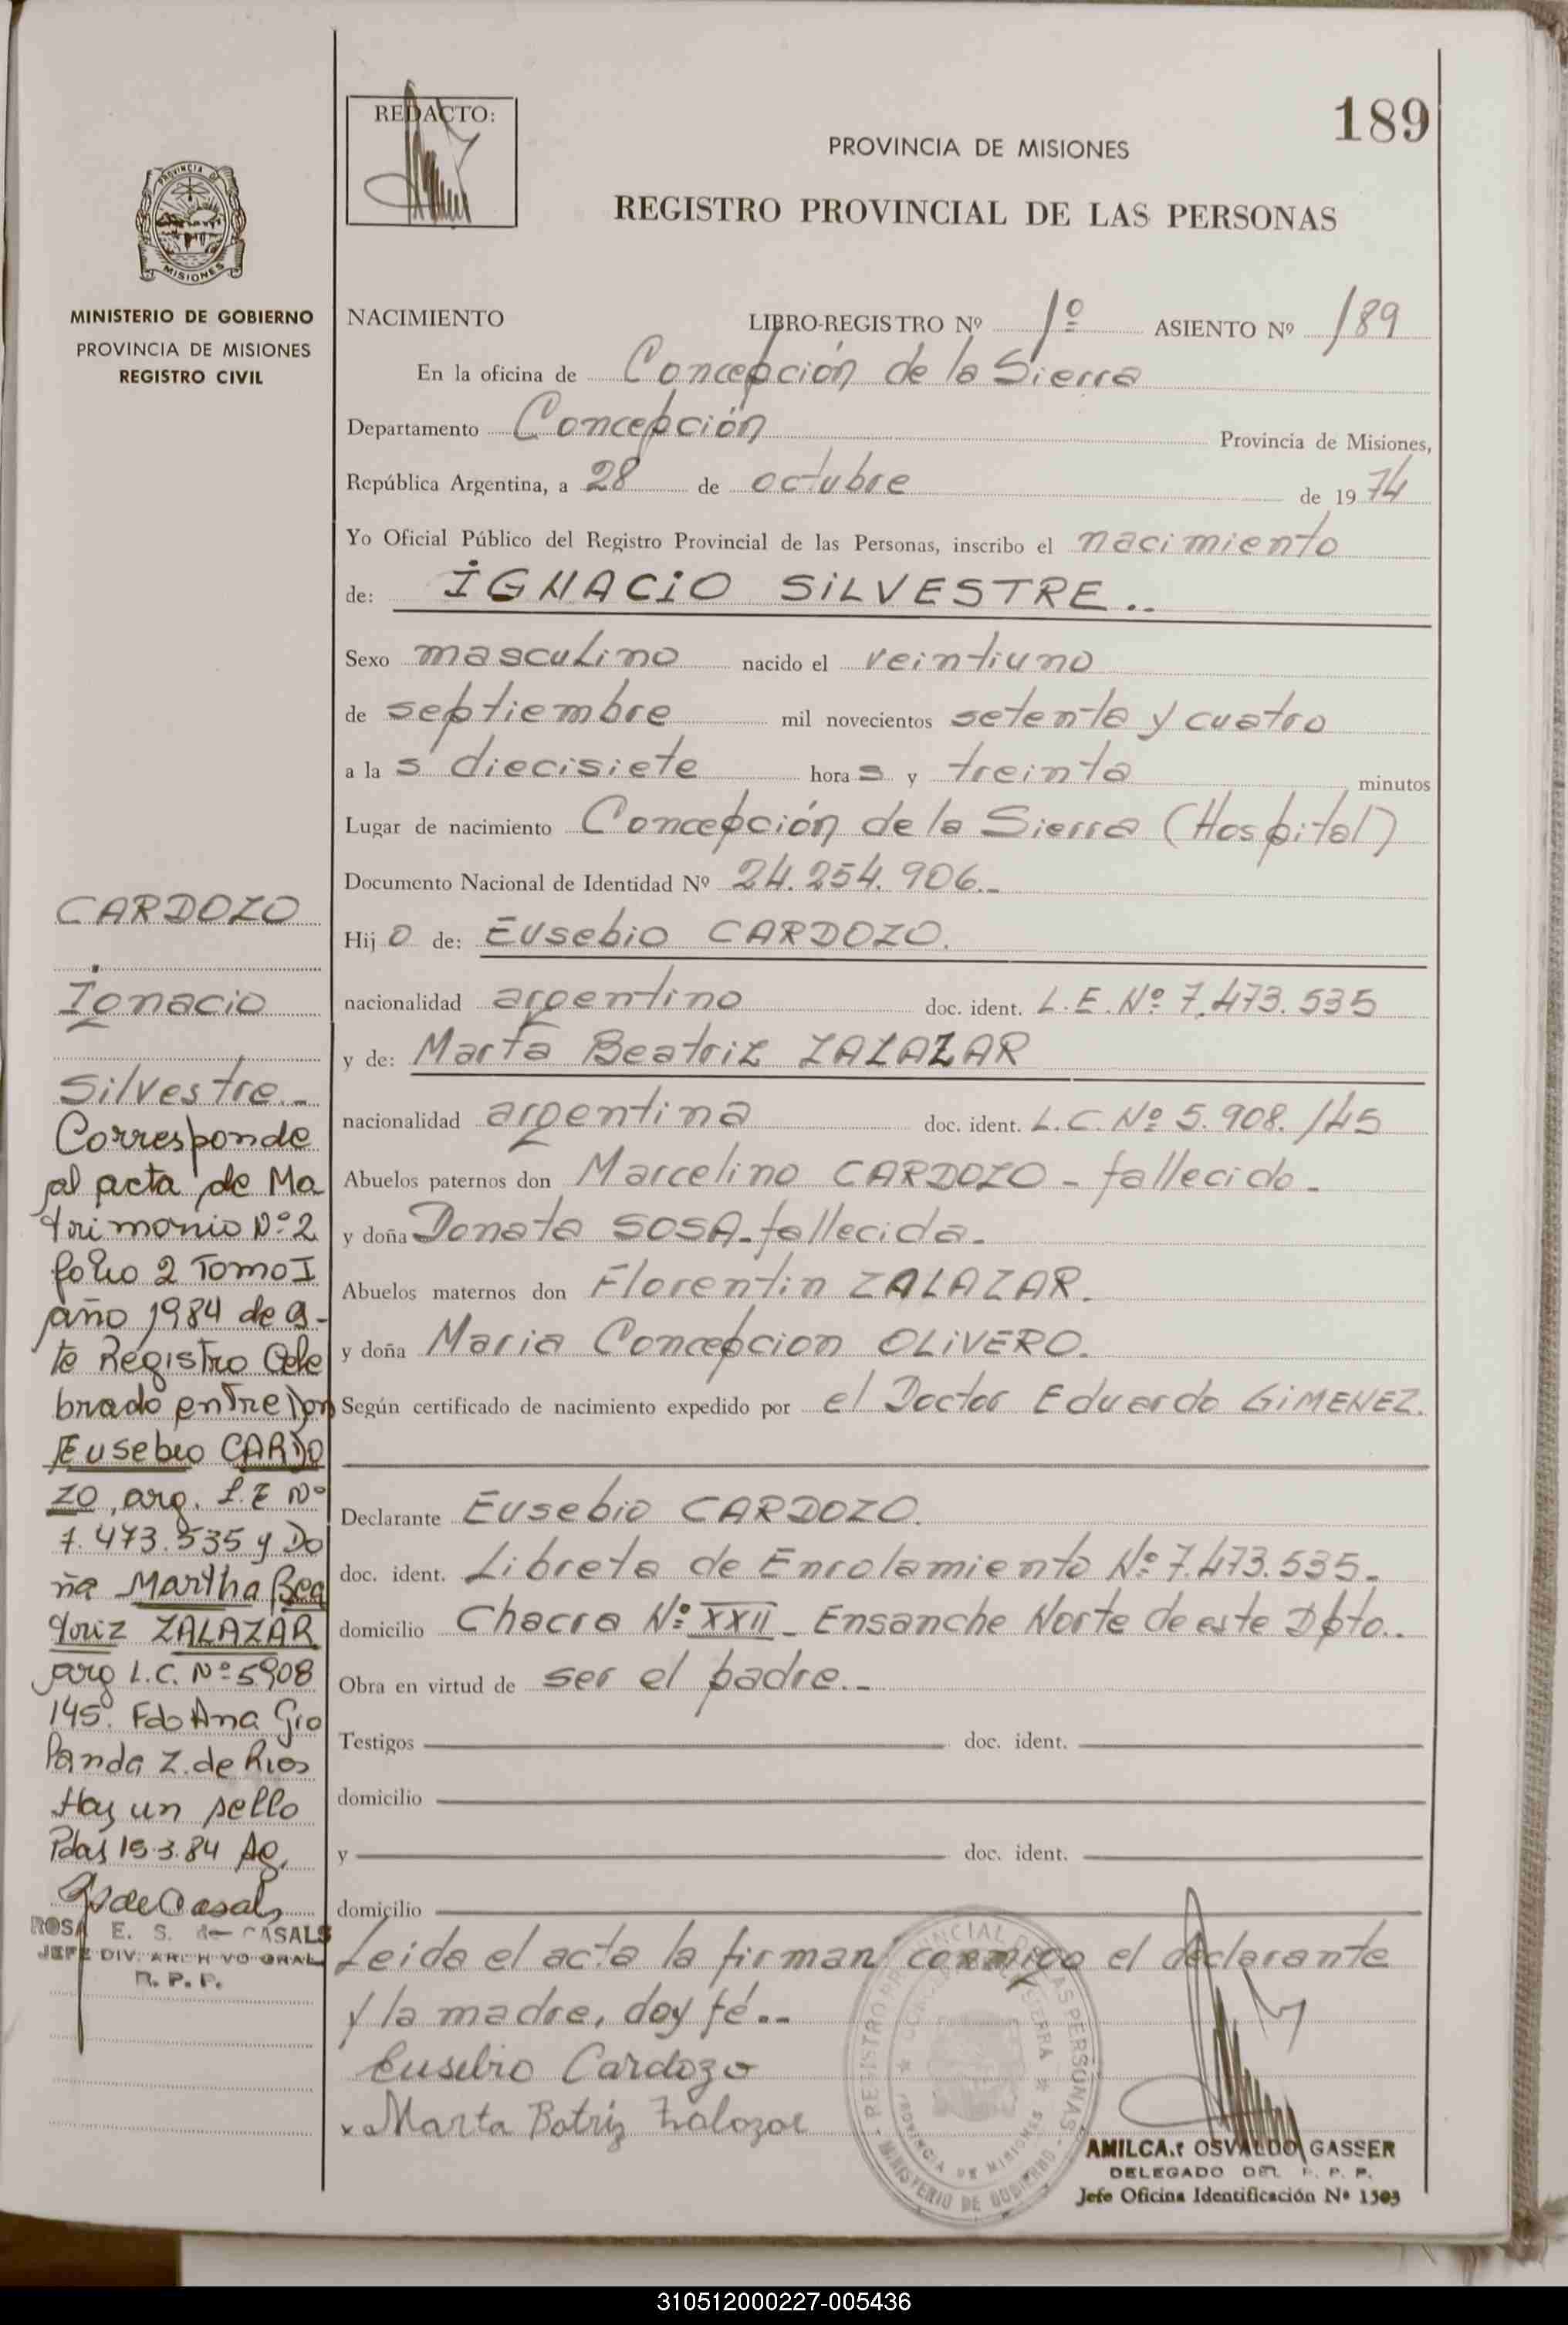 189
REDACTO:
PROVINCIA DE MISIONES
REGISTRO PROVINCIAL DE LAS PERSONAS
PROVINCIA DE
MISIONES
MINISTERIO DE GOBIERNO
PROVINCIA DE MISIONES
REGISTRO CIVIL
NACIMIENTO LIBRO-REGISTRO Nº 1º ASIENTO Nº 189
En la oficina de Concepción de la Sierra
Departamento Concepción Provincia de Misiones,
República Argentina, a 28 de octubre de 1974
Yo Oficial Público del Registro Provincial de las Personas, inscribo el nacimiento
de: IGNACIO SILVESTRE..
Sexo masculino nacido el veintiuno
de septiembre mil novecientos setenta y cuatro
a las diecisiete horas y treinta minutos
Lugar de nacimiento Concepción de la Sierra (Hospital)
Documento Nacional de Identidad Nº 24.254.906.-
Hijo de: Eusebio CARDOZO.
nacionalidad argentino doc. ident. L.E. Nº 7.473.535
y de: Marta Beatriz ZALAZAR
nacionalidad argentina doc. ident. L.C. Nº 5.908.145
Abuelos paternos don Marcelino CARDOZO - fallecido.-
y doña Donata SOSA - fallecida.-
Abuelos maternos don Florentin ZALAZAR.
y doña Maria Concepcion OLIVERO.
Según certificado de nacimiento expedido por el Doctor Eduardo GIMENEZ.
Declarante Eusebio CARDOZO.
doc. ident. Libreta de Enrolamiento Nº 7.473.535.-
domicilio Chacra Nº XXII - Ensanche Norte de este Dpto..
Obra en virtud de ser el padre.-
Testigos doc. ident.
domicilio
y doc. ident.
domicilio
Leida el acta la firman conmigo el declarante
y la madre, doy fé.-
Eusebio Cardozo
x Marta Batriz Zalazar
CARDOZO
Ignacio
Silvestre.-
Corresponde
al acta de Ma
trimonio Nº 2
folio 2 Tomo I
año 1984 de es-
te Registro Cele
brado entre Don
Eusebio CARDO
ZO, arg. L.E Nº
7.473.535 y Do
ña Martha Bea
triz ZALAZAR
arg L.C. Nº 5908
145. Fdo Ana Gio
landa Z. de Rios
Hay un sello
Pdas 15.3.84 Ag.
R S de Casals
ROSA E. S. de CASALS
JEFE DIV. ARCHIVO GRAL
R. P. P.
REGISTRO PROVINCIAL DE LAS PERSONAS
MINISTERIO DE GOBIERNO
PROVINCIA DE MISIONES
AMILCAR OSVALDO GASSER
DELEGADO DEL R. P. P.
Jefe Oficina Identificación Nº 1303
310512000227-005436